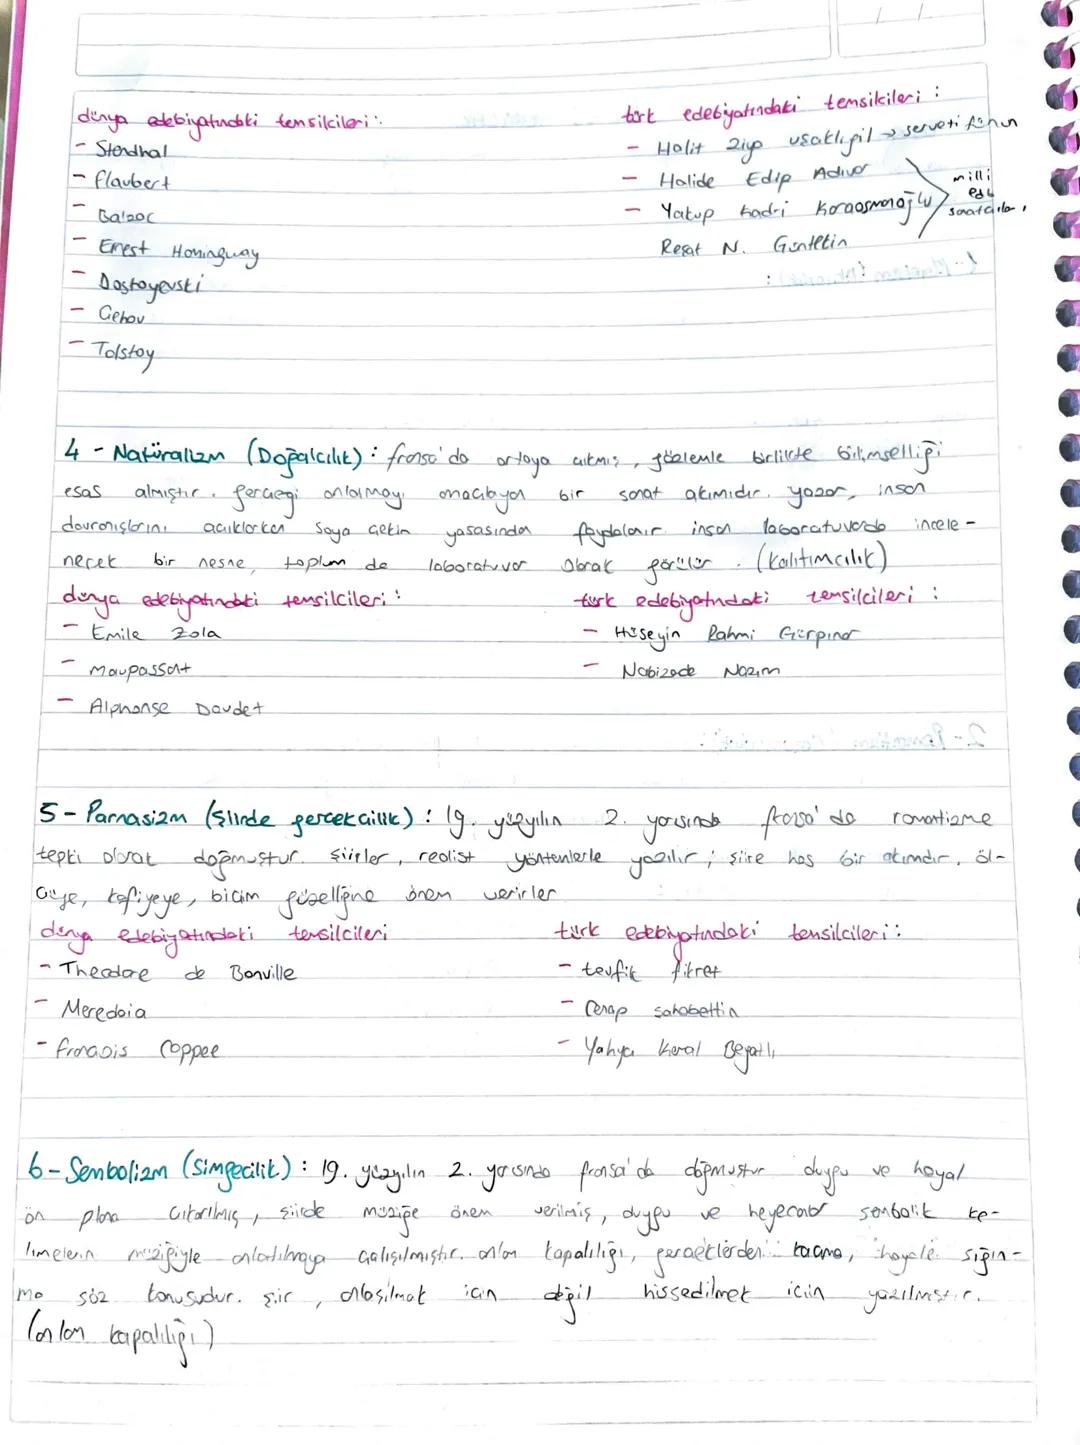 dünya edebiyatındaki temsilcileri:
- Stendhal
- flaubert
- Balzac
- Ernest Hemingway
- Dostoyevski
- Çehov
- Tolstoy
türk edebiyatındaki temsilcileri:
- Halit Ziya Uşaklıgil → serveti fünun
- Halide Edip Adıvar
- Yakup kadri Karaosmanoğlu
Reşat N. Güntekin
milli
edb
sanatçıları
4 - Natüralizm (Doğalcılık): fransa'da ortaya çıkmış, gözlemle birlikte bilimselliği
esas almıştır. gerçeği anlamayı amaçlayan bir sanat akımıdır. yazar, insan
davranışlarını açıklarken Soya çekim yasasından faydalanır insan laboratuvarda incele-
necek bir nesne, toplum da laboratuvar olarak görülür. (kalıtımcılık)
dünya edebiyatındaki temsilcileri:
- Emile Zola
- Maupassant
- Alphonse Daudet
türk edebiyatındaki temsilcileri:
- Hüseyin Rahmi Gürpınar
- Nabizade Nazım
5 - Parnasizm (şiirde gerçekçilik): 19. yüzyılın 2. yarısında fransa'da romantizme
tepki olarak doğmuştur. şiirler, realist yöntemlerle yazılır; şiire has bir akımdır, öl-
çüye, kafiyeye, biçim güzelliğine önem verirler
dünya edebiyatındaki temsilcileri
- Theodore de Banville
- Meredaia
- francois Coppee
türk edebiyatındaki temsilcileri:
- tevfik fikret
- Cenap şahabettin
- Yahya Kemal Beyatlı
6 - Sembolizm (Simgecilik): 19. yüzyılın 2. yarısında fransa'da doğmuştur duygu ve hayal
ön plana çıkarılmış, şiirde müziğe önem verilmiş, duygu ve heyecanlar sembolik ke-
limelerin müziğiyle anlatılmaya çalışılmıştır. anlam kapalılığı, gerçeklerden kaçma, hayale sığın-
ma söz konusudur. şiir, anlaşılmak için değil hissedilmek için yazılmıştır.
(anlam kapalılığı)